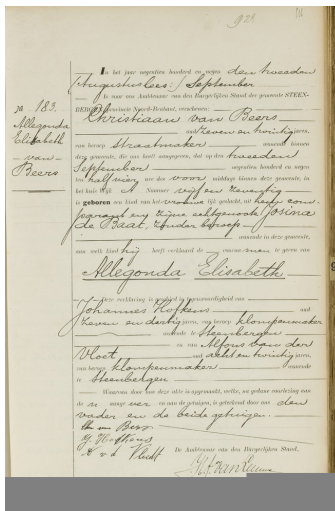 921
In het jaar negentien honderd en negen den tweeden
(Augustus lees:) September
is voor ons Ambtenaar van den Burgerlijken Stand der gemeente STEEN-
BERGEN provincie Noord-Brabant, verschenen:
Christiaan van Beers
No 183.
Allegonda
Elisabeth
van
Beers
oud zeven en twintig jaren,
van beroep straatmaker wonende binnen
deze gemeente, die ons heeft aangegeven, dat op den tweeden
September negentien honderd en negen
ten half vier ure des voor middags binnen deze gemeente, in
het huis wijk A Nummer vijf en zeventig
is geboren een kind van het vrouwelijk geslacht, uit hem com-
parant en zijne echtgenoote Josina
de Baat, zonder beroep
wonende in deze gemeente,
aan welk kind hij heeft verklaard de voornamen te geven van
Allegonda Elisabeth.
Deze verklaring is geschied in tegenwoordigheid van
Johannes Hofkens oud
zeven en dertig jaren, van beroep klompenmaker
wonende te Steenbergen
en van Alfons van der
Vloet oud acht en twintig jaren,
van beroep klompenmaker wonende
te Steenbergen
Waarvan door ons deze akte is opgemaakt, welke, na gedane voorlezing van
de aangever, en aan de getuigen, is geteekend door ons den
vader en de beide getuigen.
van Beers
J. Hofkens
A v d Vloet
De Ambtenaar van den Burgerlijken Stand,